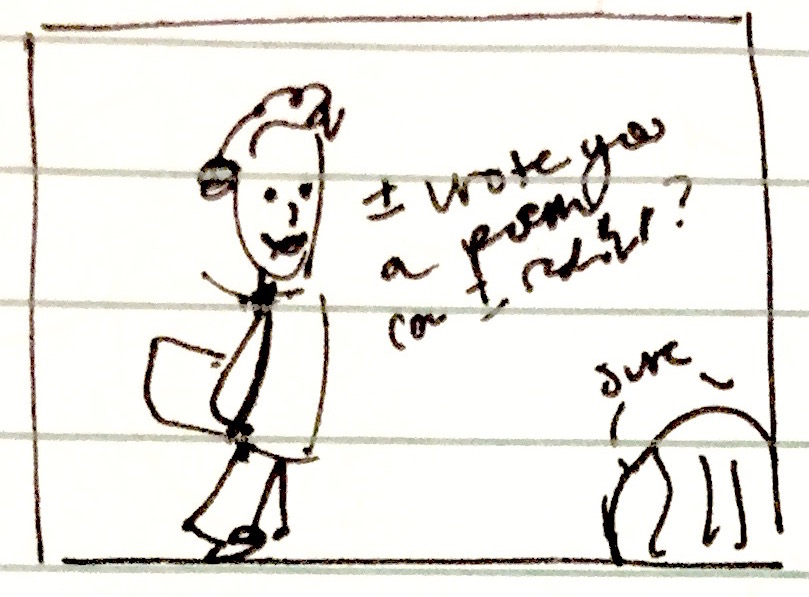 I wrote you
a poem
can I read it?
Sure